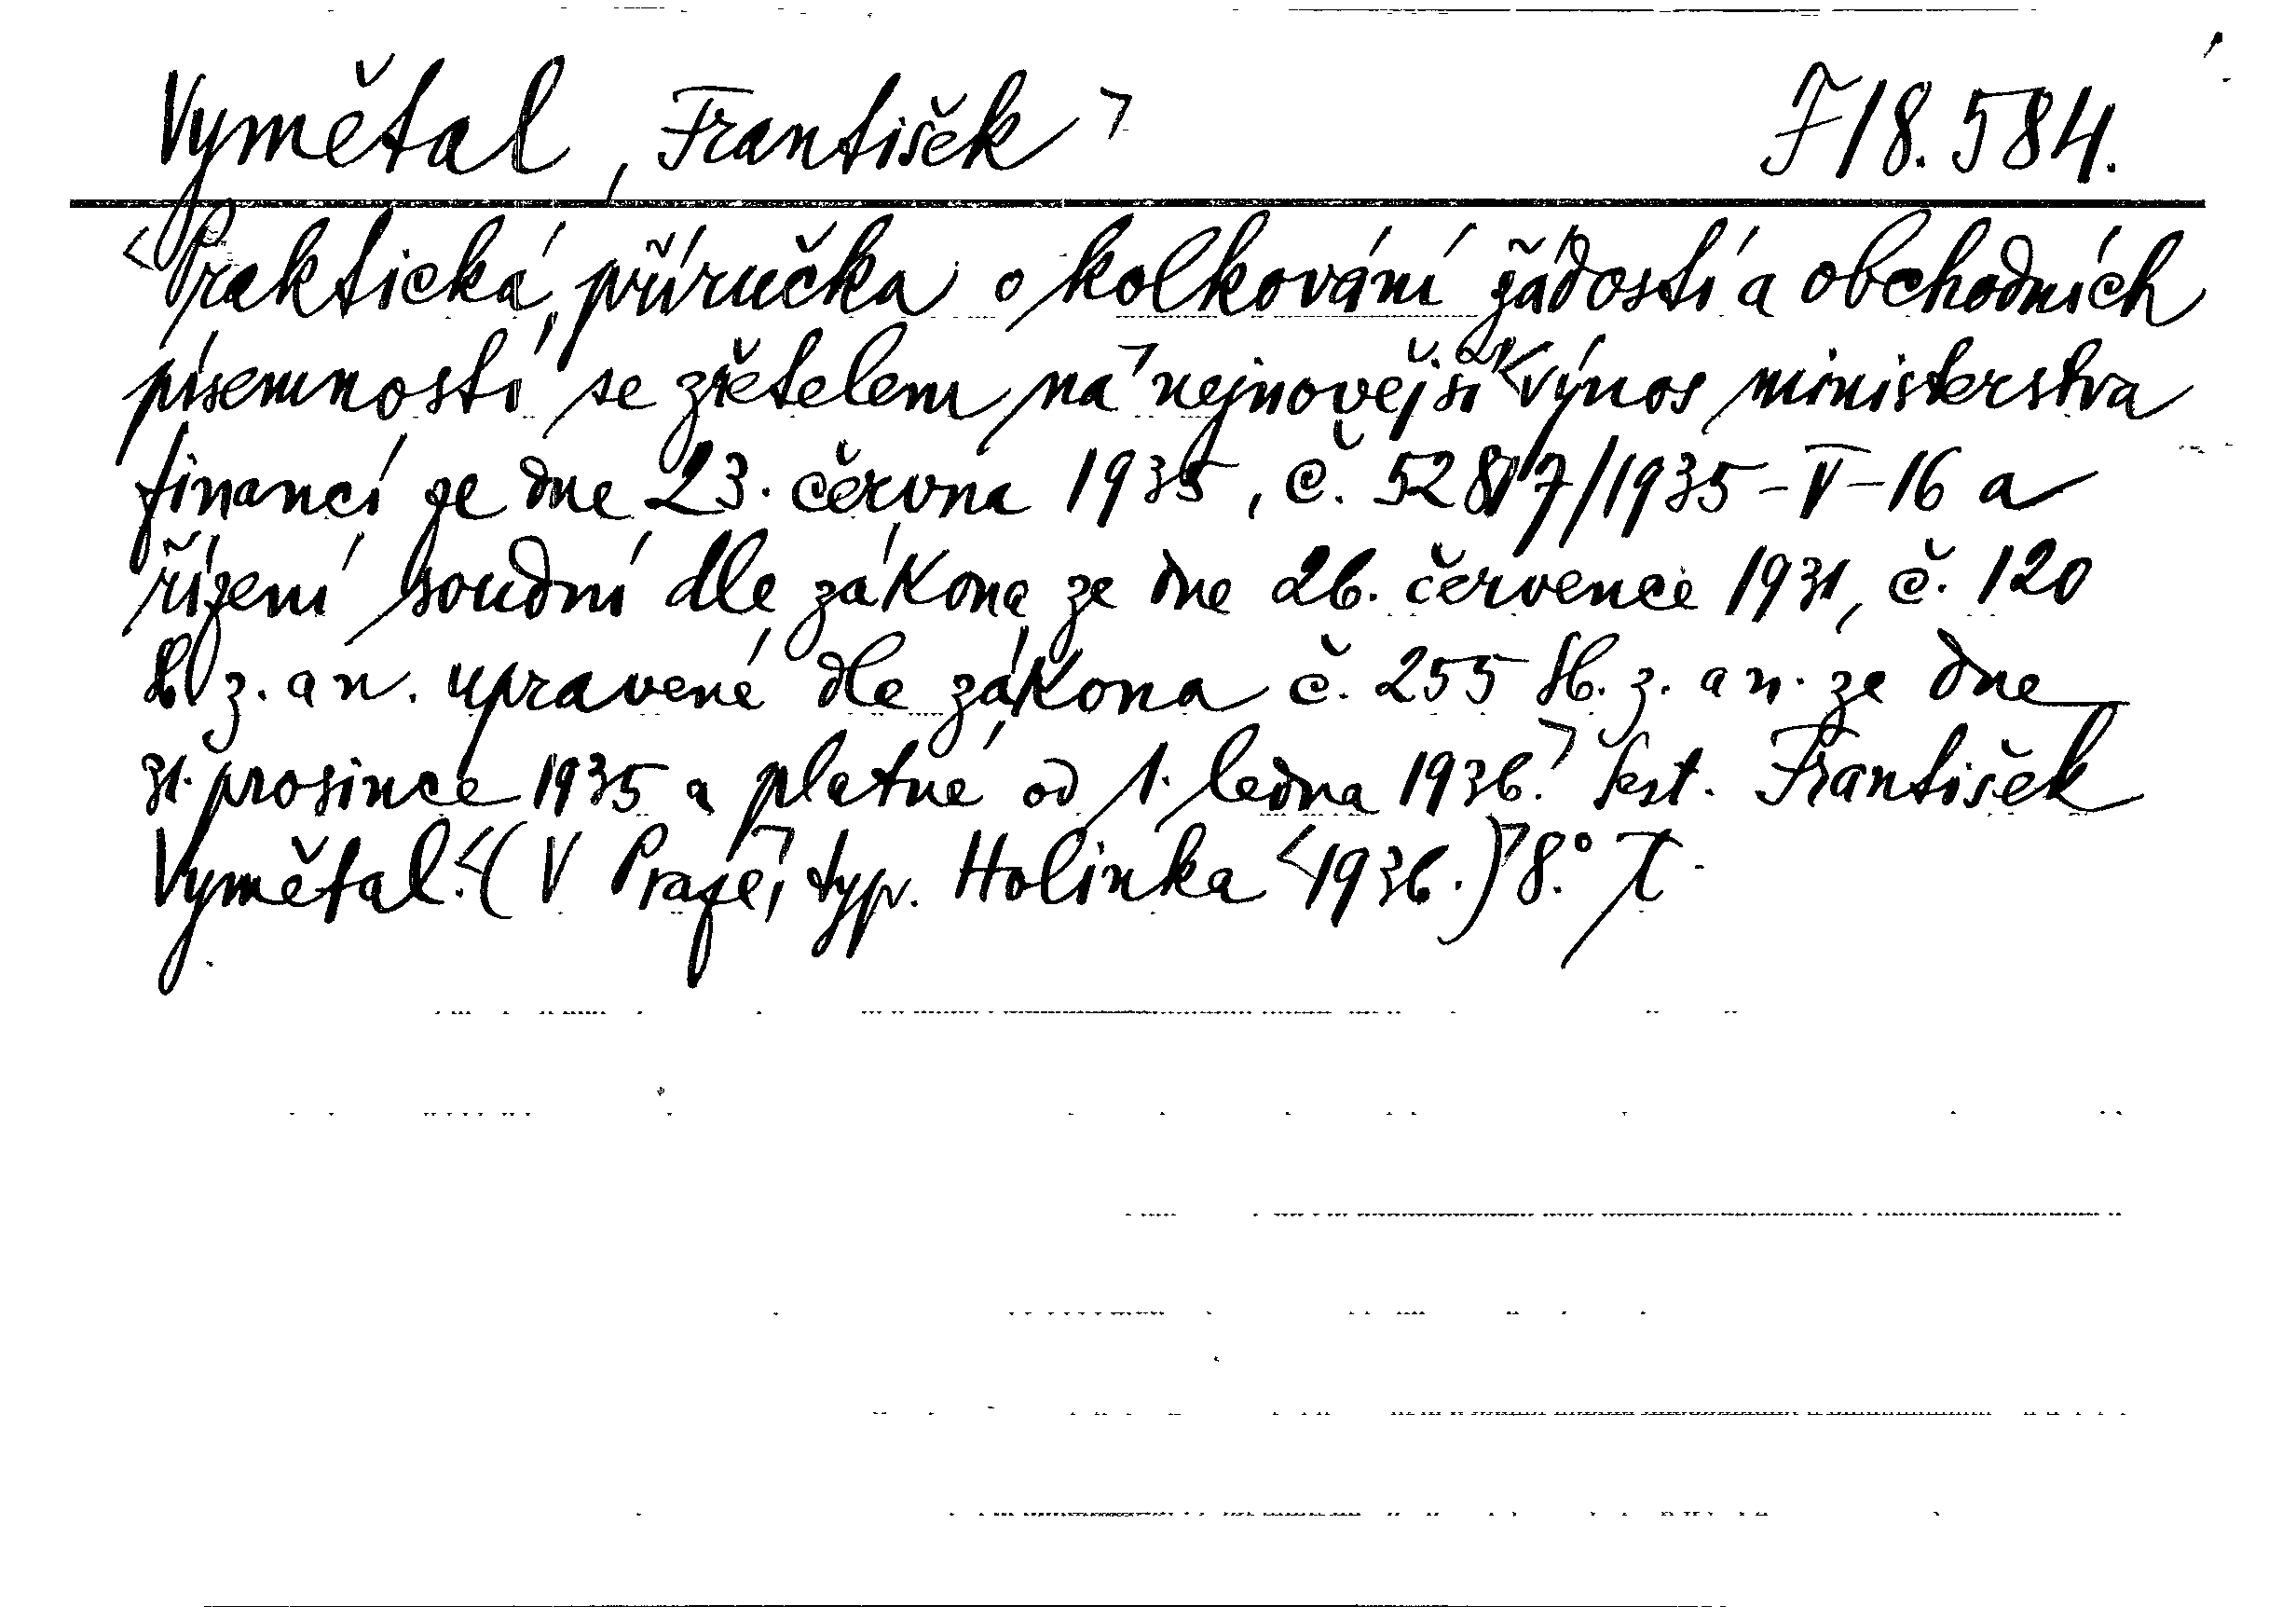 Vymětal, František ⌝ F 18.584.
<Praktická příručka o kolkování žádostí a obchodních
písemností se zřetelem na ⌝ nejnovější < výnos ministerstva
financí ze dne 23. června 1935, č. 52817/1935-V-16 a
řízení soudní dle zákona ze dne 26. července 1931, č. 120
Sb z. a n. upravené dle zákona č. 255 Sb. z. a n. ze dne
31. prosince 1935 a platné od 1. ledna 1936.⌝ Sest. František
Vymětal.<(V Praze,⌝ typ. Holinka <1936.)⌝ 8.°